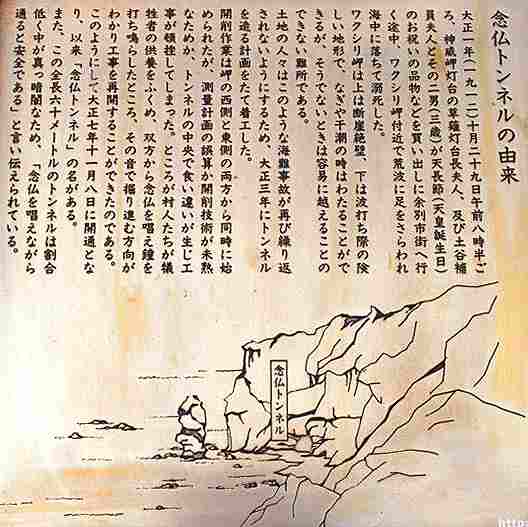 念仏トンネルの由来
大正一年(一九一二)十月二十九日午前八時半ご
ろ、神威岬灯台の草薙灯台長夫人、及び土谷補
員夫人とその二男(三歳)が天長節(天皇誕生日)
のお祝いの品物などを買い出しに余別市街へ行
く途中、ワクシリ岬付近で荒波に足をさらわれ
海中に落ちて溺死した。
ワクシリ岬は上は断崖絶壁、下は波打ち際の険
しい地形で、なぎや干潮の時はわたることがで
きるが、そうでないときは容易に越えることの
できない難所である。
土地の人々はこのような海難事故が再び繰り返
されないようにするため、大正三年にトンネル
を造る計画をたて着工した。
開削作業は岬の西側と東側の両方から同時に始
められたが、測量計画の誤算か開削技術が未熟
なためか、トンネルの中央で食い違いが生じ工
事が頓挫してしまった。ところが村人たちが犠
牲者の供養をふくめ、双方から念仏を唱え鐘を
打ち鳴らしたところ、その音で掘り進む方向が
わかり工事を再開することができたのである。
このようにして大正七年十一月八日に開通とな
り、以来「念仏トンネル」の名がある。
また、この全長六十メートルのトンネルは割合
低く中が真っ暗闇なため、「念仏を唱えながら
通ると安全である」と言い伝えられている。
念仏トンネル
http: